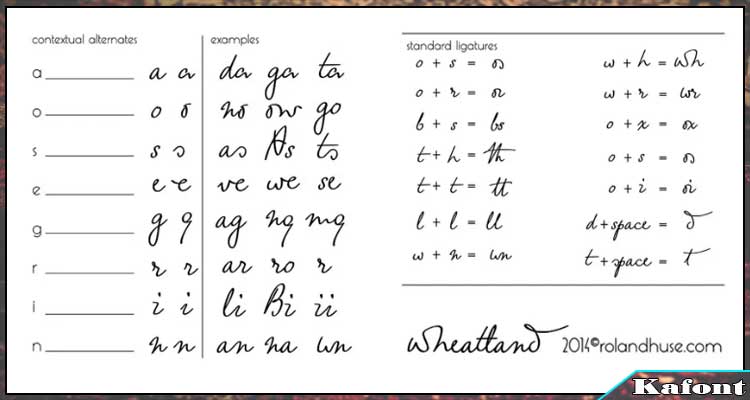 contextual alternates examples
a a a da ga ta
o o o no ow go
s s s as As ts
e e e ve we se
g g g ag ng mg
r r r ar ro r
i i i li Bi ii
n n n an na wn
standard ligatures
o + s = os
o + r = or
b + s = bs
t + h = th
t + t = tt
l + l = ll
w + n = wn
w + h = wh
w + r = wr
o + x = ox
o + s = os
o + i = oi
d + space = d
t + space = t
wheatland 2014©rolandhuse.com
Kafont